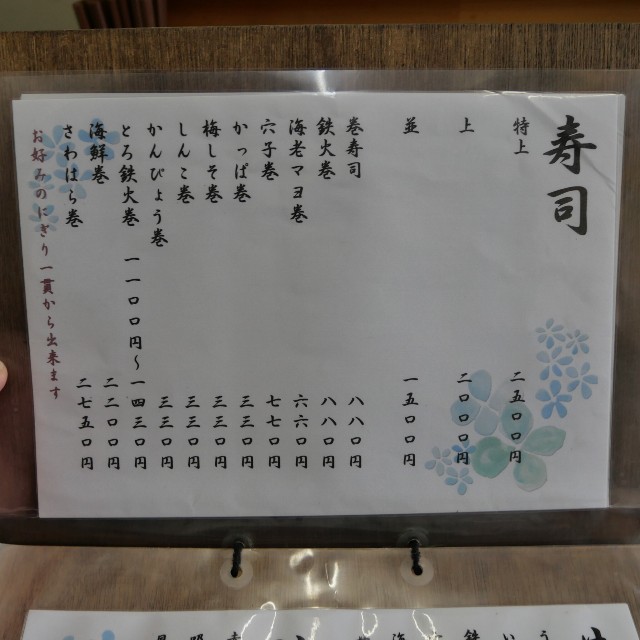 寿司
特上 二五〇〇円
上 二〇〇〇円
並 一五〇〇円
巻寿司 八八〇円
鉄火巻 八八〇円
海老マヨ巻 六六〇円
穴子巻 七七〇円
かっぱ巻 三三〇円
梅しそ巻 三三〇円
しんこ巻 三三〇円
かんぴょう巻 三三〇円
とろ鉄火巻 一一〇〇円〜一四三〇円
海鮮巻 二二〇〇円
さわはら巻 二七五〇円
お好みのにぎり一貫から出来ます